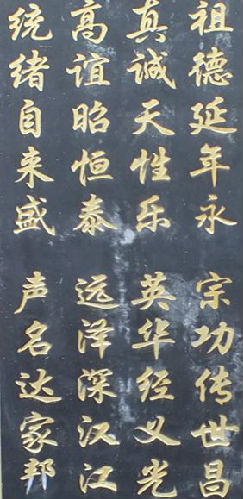 祖德延年永 宗功传世昌
真诚天性乐 英华经义光
高谊昭恒泰 远泽深汉江
统绪自来盛 声名达家邦